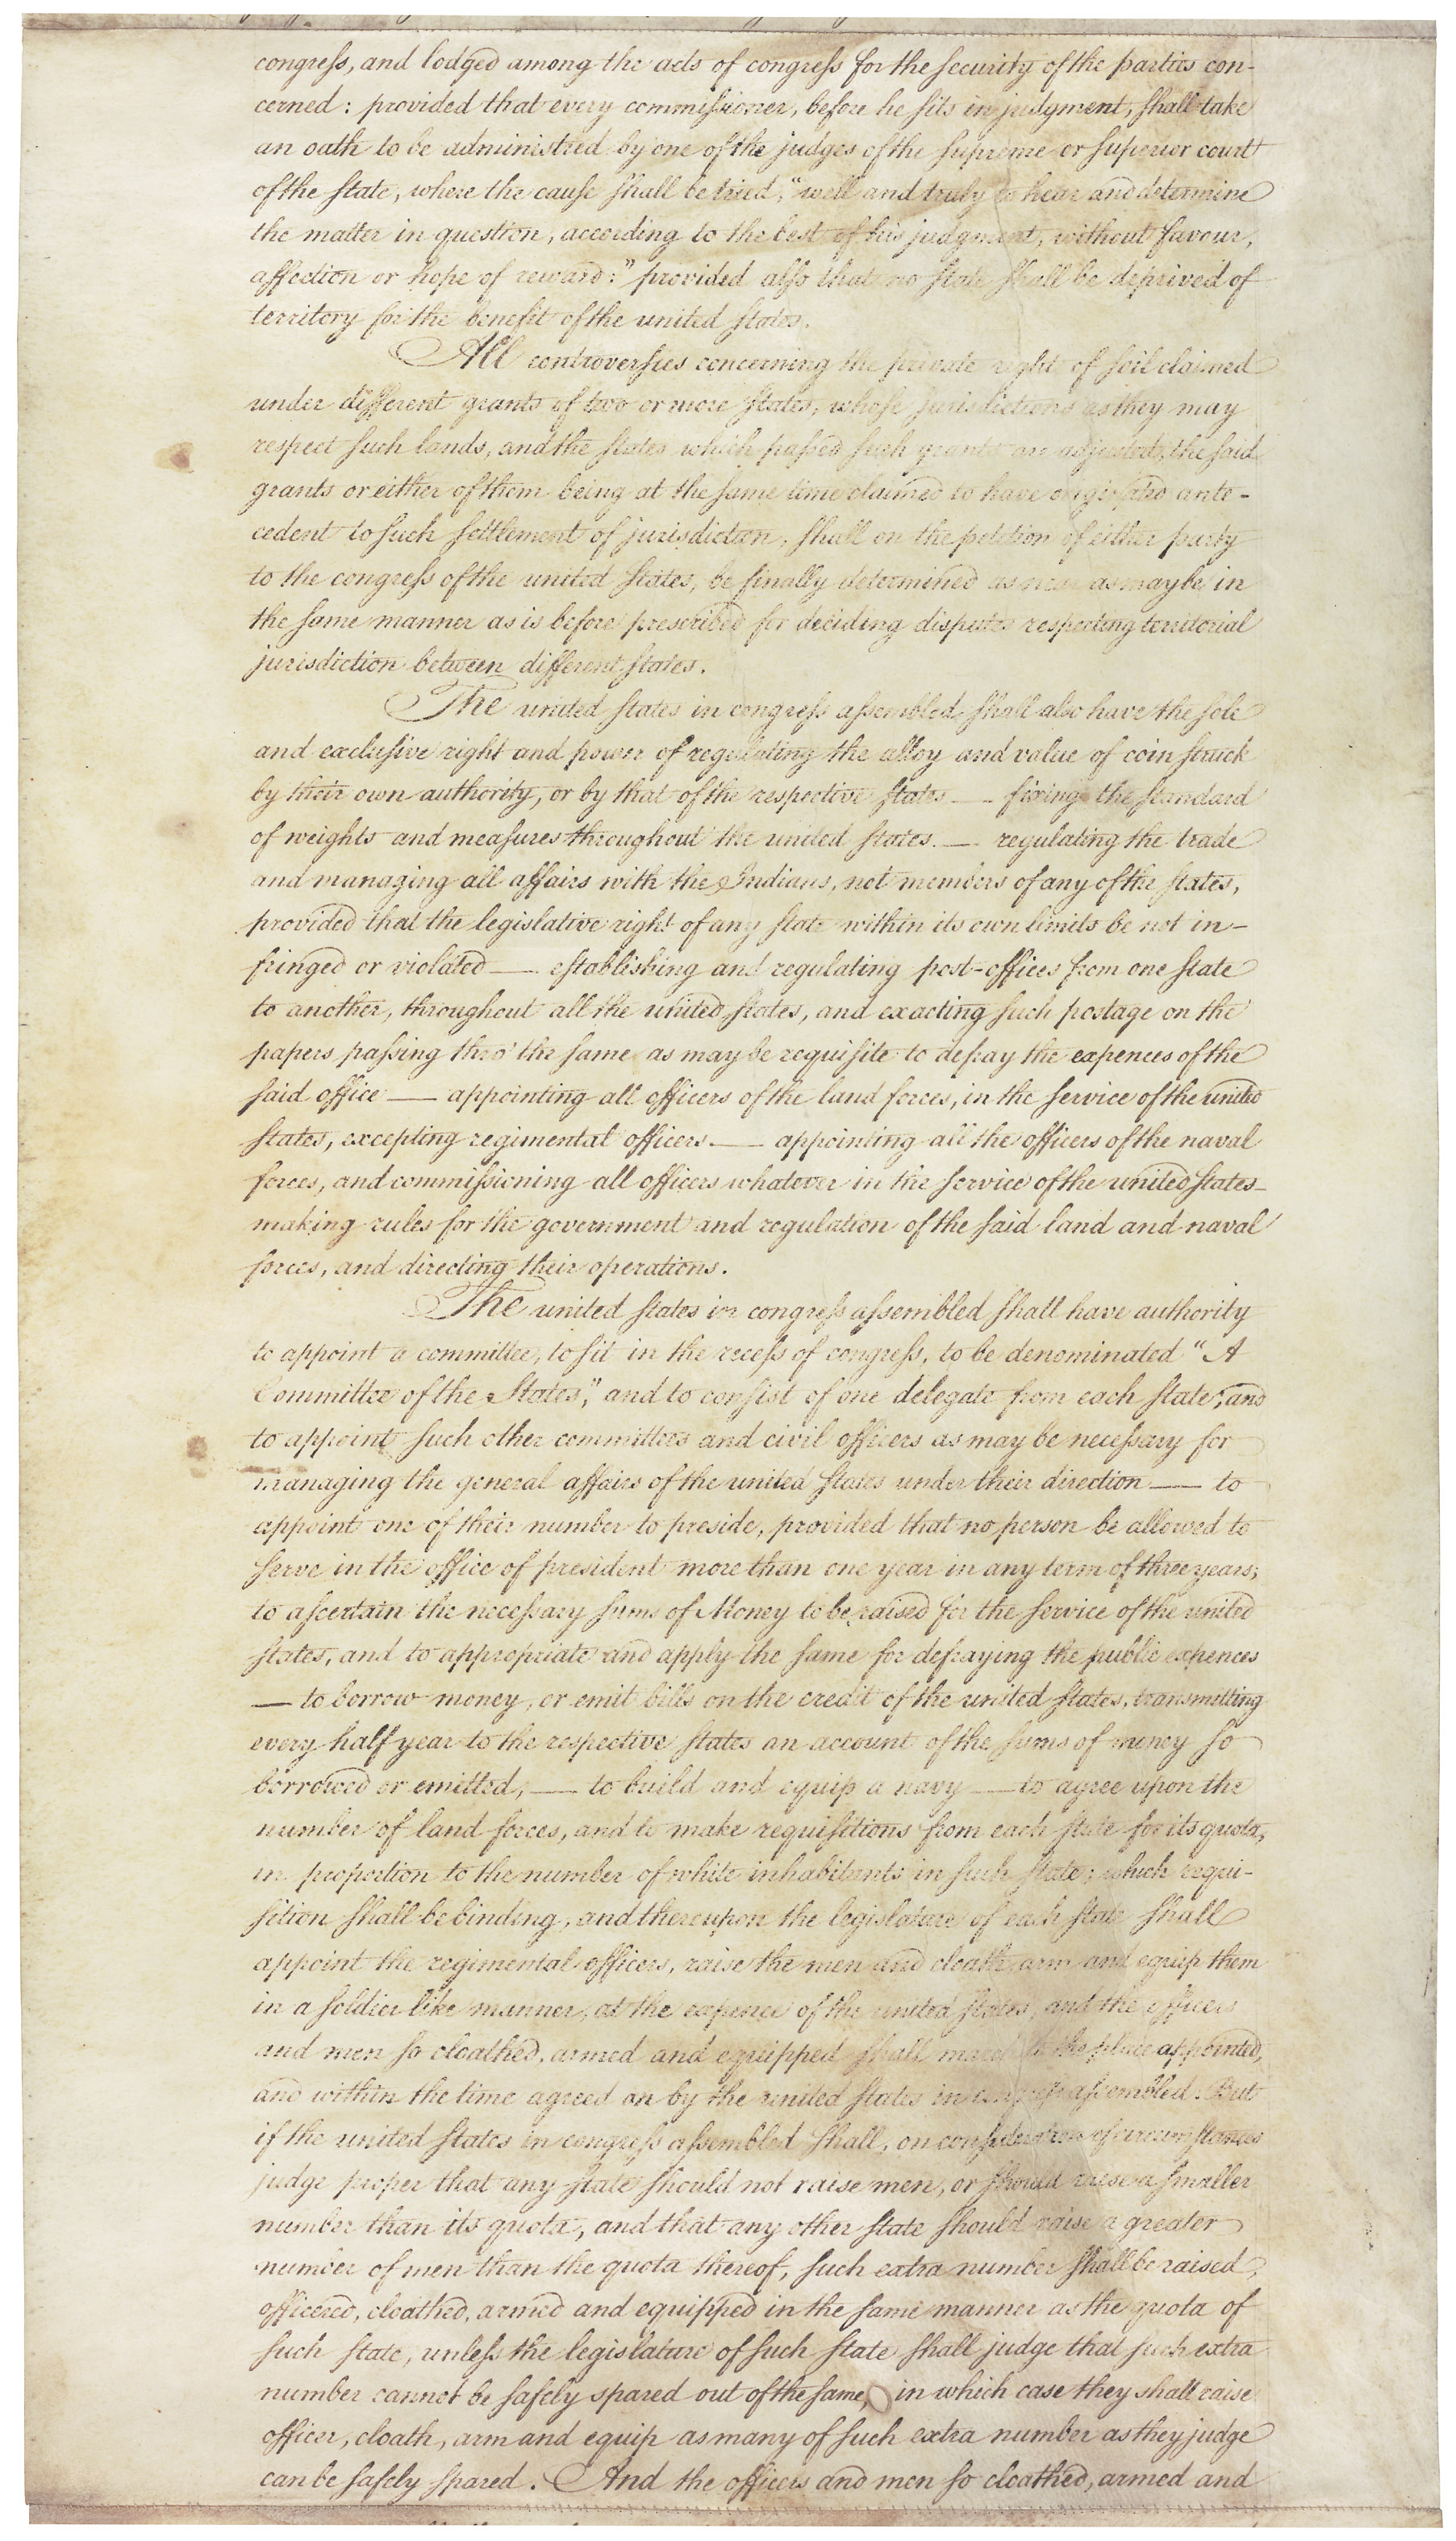 congress, and lodged among the acts of congress for the security of the parties con-
cerned: provided that every commissioner, before he sits in judgment, shall take
an oath to be administred by one of the judges of the supreme or superior court
of the state, where the cause shall be tried, "well and truly to hear and determine
the matter in question, according to the best of his judgment, without favour,
affection or hope of reward:" provided also that no state shall be deprived of
territory for the benefit of the united states.
All controversies concerning the private right of soil claimed
under different grants of two or more states, whose jurisdictions as they may
respect such lands, and the states which passed such grants are adjusted, the said
grants or either of them being at the same time claimed to have originated ante-
cedent to such settlement of jurisdiction, shall on the petition of either party
to the congress of the united states, be finally determined as near as may be in
the same manner as is before prescribed for deciding disputes respecting territorial
jurisdiction between different states.
The united states in congress assembled shall also have the sole
and exclusive right and power of regulating the alloy and value of coin struck
by their own authority, or by that of the respective states — fixing the standard
of weights and measures throughout the united states. — regulating the trade
and managing all affairs with the Indians, not members of any of the states,
provided that the legislative right of any state within its own limits be not in-
fringed or violated — establishing and regulating post-offices from one state
to another, throughout all the united states, and exacting such postage on the
papers passing thro' the same as may be requisite to defray the expences of the
said office — appointing all officers of the land forces, in the service of the united
states, excepting regimental officers. — appointing all the officers of the naval
forces, and commissioning all officers whatever in the service of the united states —
making rules for the government and regulation of the said land and naval
forces, and directing their operations.
The united states in congress assembled shall have authority
to appoint a committee, to sit in the recess of congress, to be denominated "A
Committee of the States," and to consist of one delegate from each state; and
to appoint such other committees and civil officers as may be necessary for
managing the general affairs of the united states under their direction — to
appoint one of their number to preside, provided that no person be allowed to
serve in the office of president more than one year in any term of three years;
to ascertain the necessary sums of Money to be raised for the service of the united
states, and to appropriate and apply the same for defraying the public expences
— to borrow money, or emit bills on the credit of the united states, transmitting
every half year to the respective states an account of the sums of money so
borrowed or emitted, — to build and equip a navy — to agree upon the
number of land forces, and to make requisitions from each state for its quota,
in proportion to the number of white inhabitants in such state; which requi-
sition shall be binding, and thereupon the legislature of each state shall
appoint the regimental officers, raise the men and cloath, arm and equip them
in a soldier like manner, at the expence of the united states; and the officers
and men so cloathed, armed and equipped shall march to the place appointed,
and within the time agreed on by the united states in congress assembled. But
if the united states in congress assembled shall, on consideration of circumstances
judge proper that any state should not raise men, or should raise a smaller
number than its quota, and that any other state should raise a greater
number of men than the quota thereof, such extra number shall be raised,
officered, cloathed, armed and equipped in the same manner as the quota of
such state, unless the legislature of such state shall judge that such extra
number cannot be safely spared out of the same, in which case they shall raise
officer, cloath, arm and equip as many of such extra number as they judge
can be safely spared. And the officers and men so cloathed, armed and